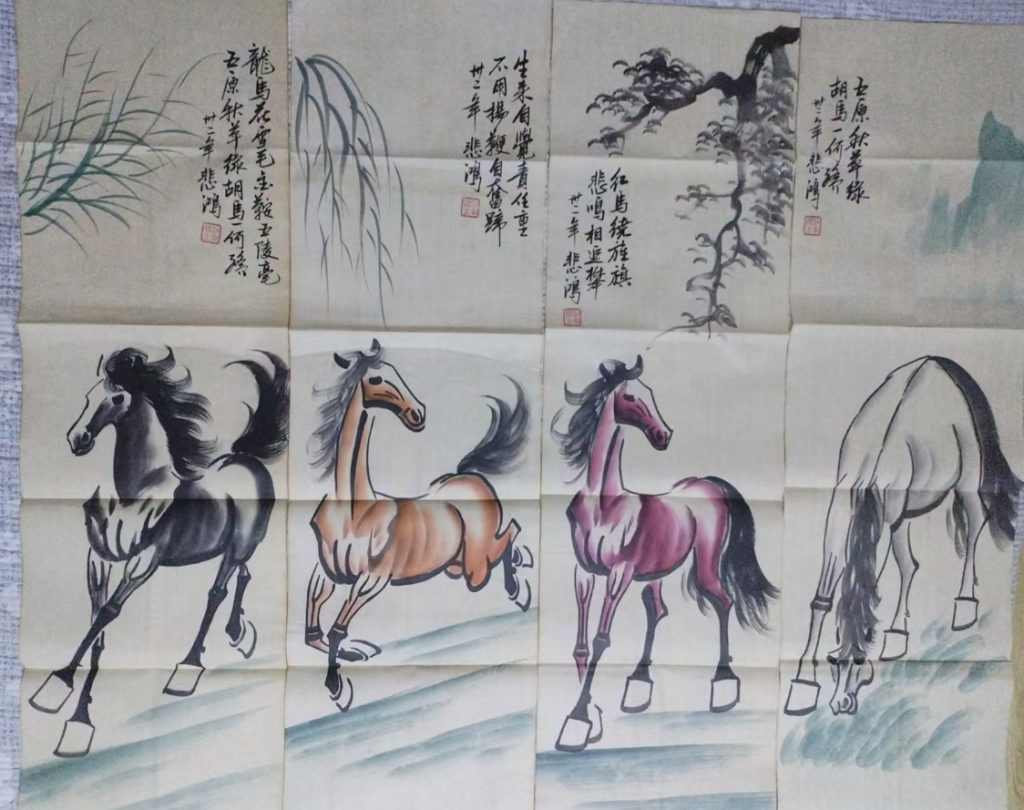 龍馬花雪毛金鞍五陵毫
五原秋草綠胡馬一何驕
卅二年 悲鴻
生来自覺責任重
不用揚鞭自奮蹄
卅二年 悲鴻
紅馬繞旌旗
悲鳴相追攀
卅二年 悲鴻
五原秋草綠
胡馬一何驕
卅二年 悲鴻